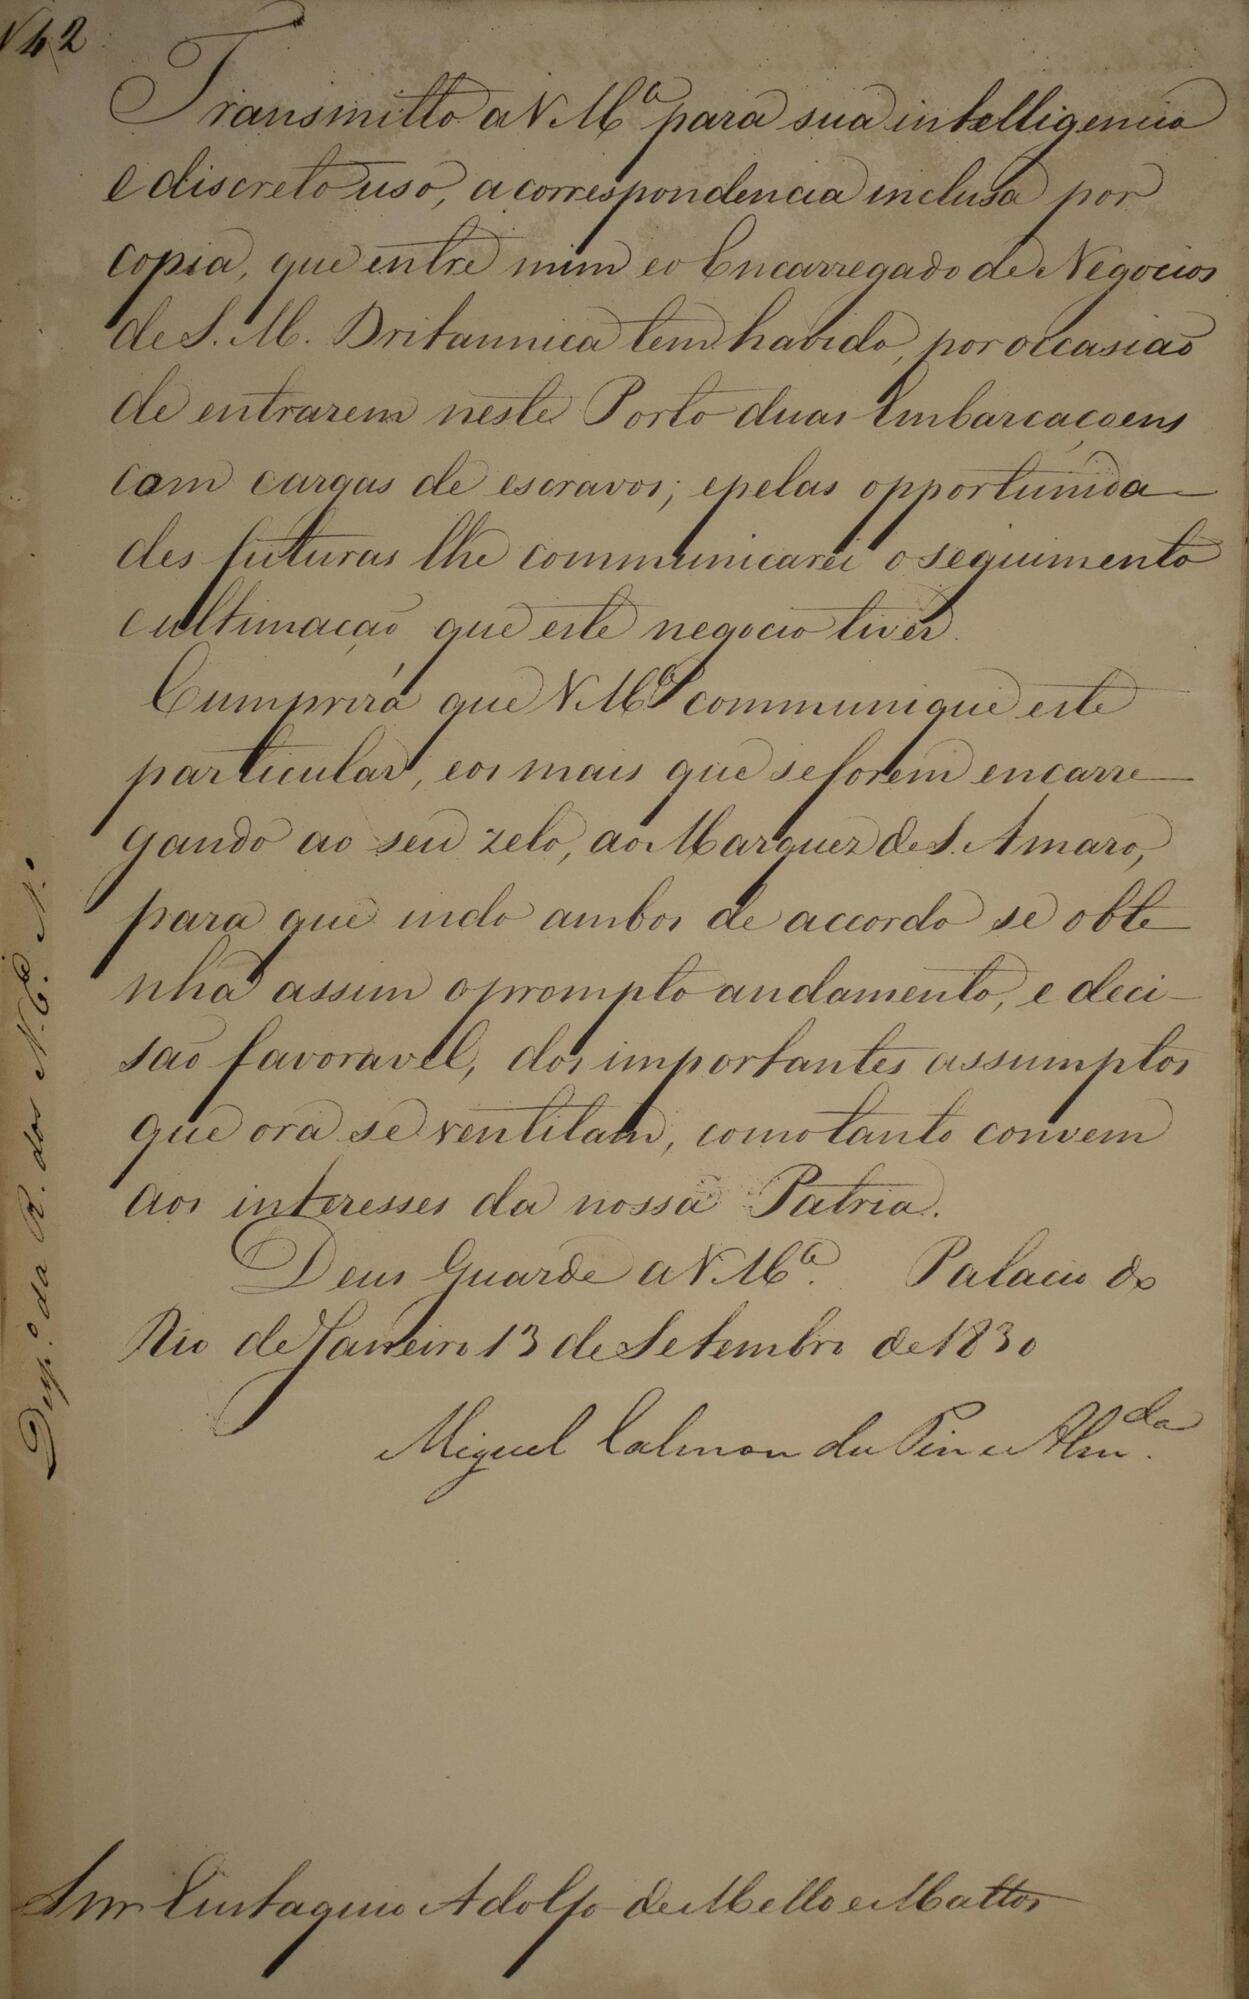 N 42
Transmitto a V. M.ce para sua intelligencia
e discreto uso, a correspondencia inclusa por
copia, que entre mim e o Encarregado de Negocios
de S. M. Britannica tem havido, por occasião
de entrarem neste Porto duas Embarcaçoens
com cargas de escravos; e pelas opportunida-
des futuras lhe communicarei o seguimento
e ultimação que este negocio tiver.
Cumprirá que V. M.ce communique este
particular, e os mais que se forem encarre-
gando ao seu zelo, ao Marquez de S. Amaro,
para que indo ambos de accordo se obte-
nha assim o prompto andamento, e deci-
são favoravel, dos importantes assumptos
que ora se ventilam, como tanto convem
aos interesses da nossa Patria.
Deus Guarde a V. M.ce. Palacio do
Rio de Janeiro 13 de Setembro de 1830
Miguel Calmon du Pin e Alm.da
Snr. Eustaquio Adolfo de Mello e Mattos
Desp.o da R. dos N.